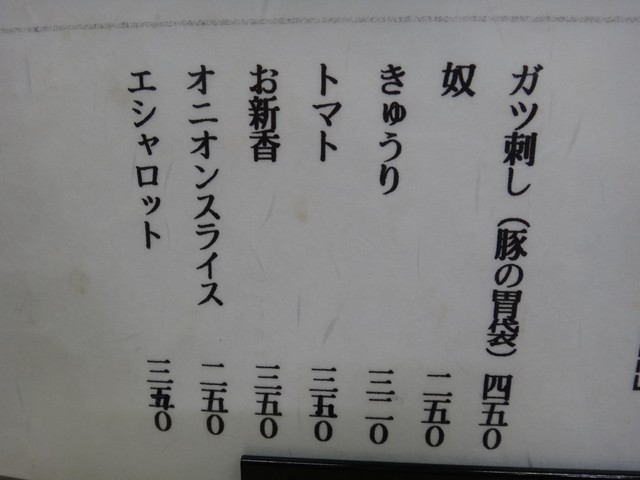 ガツ刺し（豚の胃袋）四五〇
奴 二五〇
きゅうり 三二〇
トマト 三五〇
お新香 三五〇
オニオンスライス 二五〇
エシャロット 三五〇